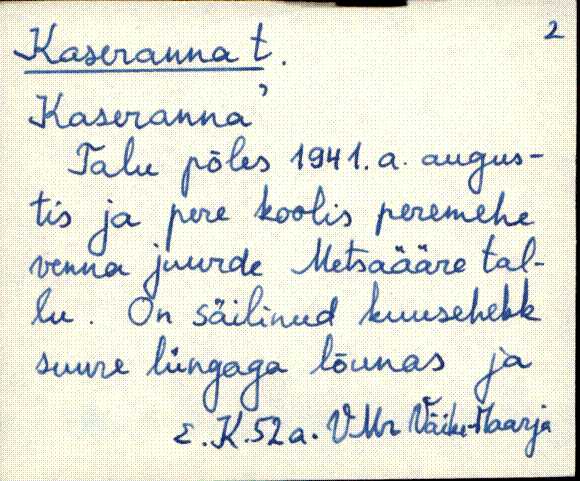 2
Kaseranna t.
Kaseranna'
Talu põles 1941. a. augus-
tis ja pere koolis peremehe
venna juurde Metsaääre tal-
lu. On säilinud kuusehekk
suure lüngaga lõunas ja
E.K. 52 a. VMr Väike-Maarja